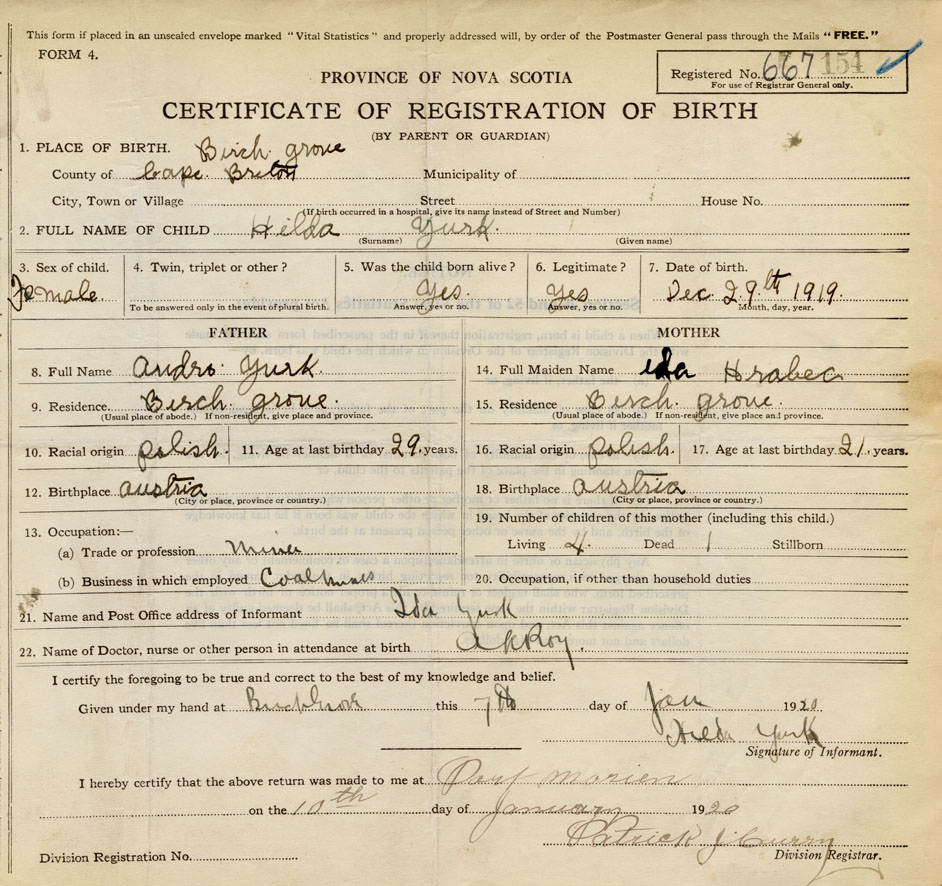 This form if placed in an unsealed envelope marked "Vital Statistics" and properly addressed will, by order of the Postmaster General pass through the Mails "FREE."
FORM 4.
Registered No. 667 154
For use of Registrar General only.
PROVINCE OF NOVA SCOTIA
CERTIFICATE OF REGISTRATION OF BIRTH
(BY PARENT OR GUARDIAN)
1. PLACE OF BIRTH. Birch grove
County of Cape Breton Municipality of
City, Town or Village Street House No.
(If birth occurred in a hospital, give its name instead of Street and Number)
2. FULL NAME OF CHILD Hilda Yurk.
(Surname) (Given name)
3. Sex of child. 4. Twin, triplet or other? 5. Was the child born alive? 6. Legitimate? 7. Date of birth.
Female. Yes. Yes Dec 29th 1919.
To be answered only in the event of plural birth. Answer, yes or no. Answer, yes or no. Month, day, year.
FATHER
8. Full Name Andro Yurk.
9. Residence. Birch grove.
(Usual place of abode.) If non-resident, give place and province.
10. Racial origin polish. 11. Age at last birthday 29. years.
12. Birthplace austria
(City or place, province or country.)
13. Occupation:—
(a) Trade or profession Miner
(b) Business in which employed Coal mines
MOTHER
14. Full Maiden Name Ida Hrabec
15. Residence Birch grove.
(Usual place of abode.) If non-resident, give place and province.
16. Racial origin polish. 17. Age at last birthday 21. years.
18. Birthplace austria
(City or place, province or country.)
19. Number of children of this mother (including this child.)
Living 4. Dead 1 Stillborn
20. Occupation, if other than household duties
21. Name and Post Office address of Informant Ida Yurk
22. Name of Doctor, nurse or other person in attendance at birth
I certify the foregoing to be true and correct to the best of my knowledge and belief.
Given under my hand at Birch Grove this 7th day of Jan 1920
Hilda Yurk
Signature of Informant.
I hereby certify that the above return was made to me at Port Morien
on the 10th day of January 1920
Patrick J. Curry
Division Registration No. Division Registrar.